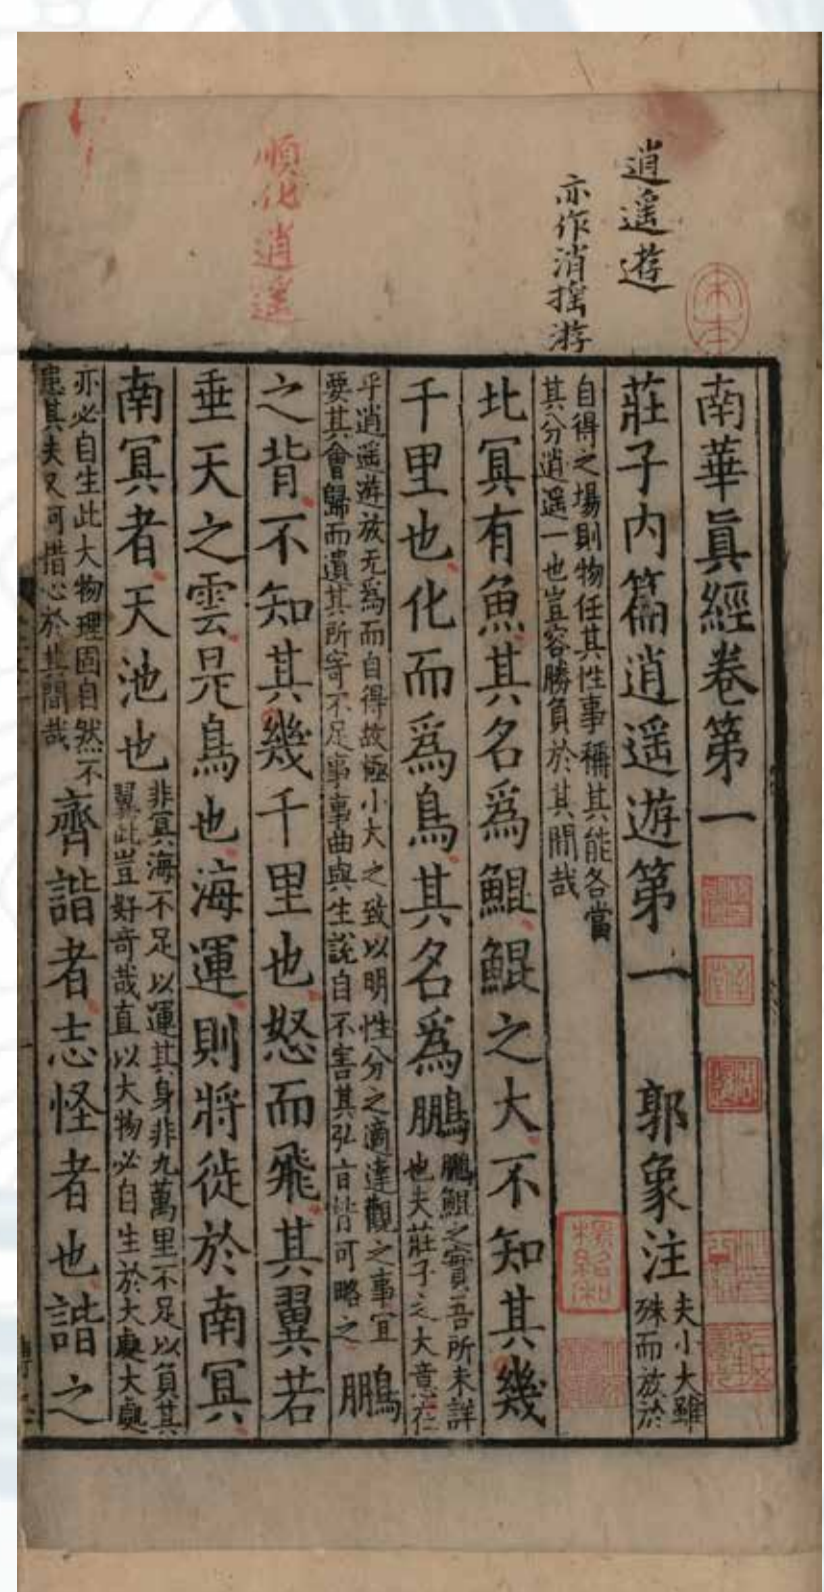 逍遥遊
亦作消搖游
順化逍遥
南華眞經卷第一
莊子内篇逍遥遊第一 郭象注 夫小大雖
殊而放於
自得之場則物任其性事稱其能各當
其分逍遥一也豈容勝負於其間哉
北冥有魚其名爲鯤鯤之大不知其幾
千里也化而爲鳥其名爲鵬 鵬鯤之實吾所未詳
也夫莊子之大意在
乎逍遥遊放无爲而自得故極小大之致以明性分之適達觀之事宜
要其會歸而遺其所寄不足事事曲與生說自不害其弘旨皆可略之 鵬
之背不知其幾千里也怒而飛其翼若
垂天之雲是鳥也海運則將徙於南冥
南冥者天池也 非冥海不足以運其身非九萬里不足以負其
翼此豈好奇哉直以大物必自生於大處大處
亦必自生此大物理固自然不
患其失又何措心於其間哉 齊諧者志怪者也諧之